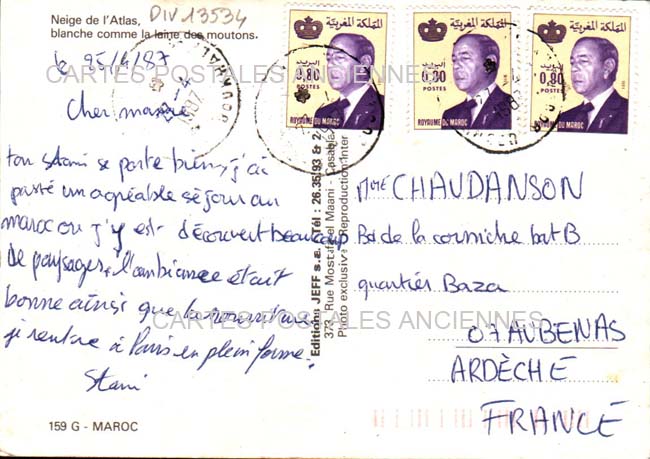 Neige de l'Atlas,
blanche comme la laine des moutons.
DIV 13534
le 25/4/87
Cher mamie
ton Stani se porte bien, j'ai
passé un agréable séjour au
maroc ou j'y est découvert beaucoup
de paysages, l'ambiance était
bonne ainsi que la nourriture
je rentre à Paris en plein forme.
Stani
159 G - MAROC
Editions JEFF s.a. Tél : 26.35.93 & 2
373, Rue Mostafa el Maani - Casabla
Photo exclusive Reproduction Inter
المملكة المغربية
البريد
0,80
POSTES
ROYAUME DU MAROC
المملكة المغربية
البريد
0,80
POSTES
ROYAUME DU MAROC
المملكة المغربية
البريد
0,80
POSTES
ROYAUME DU MAROC
Mme CHAUDANSON
Bd de la corniche bat B
quartier Baza
07 AUBENAS
ARDÈCHE
FRANCE
CARTES POSTALES ANCIENNES
CARTES POSTALES ANCIENNES